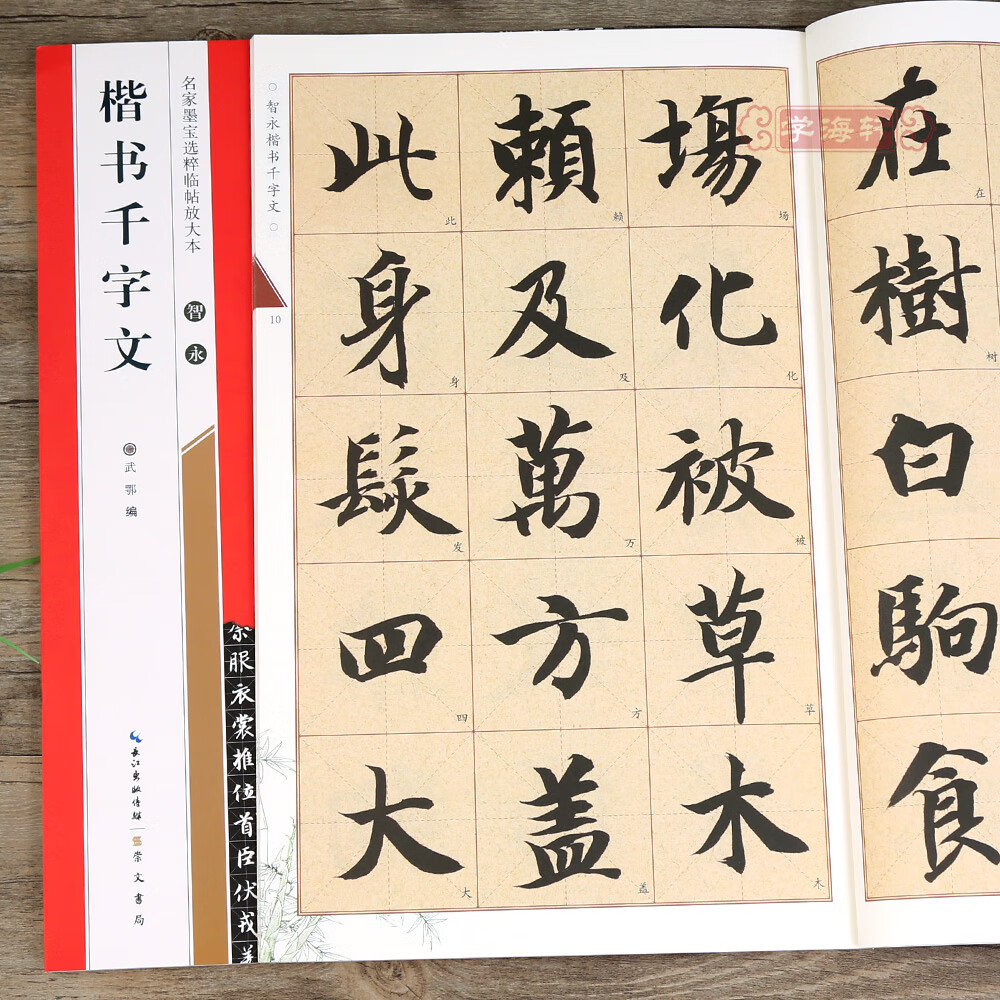 楷书千字文
名家墨宝选粹临帖放大本
智永
武鄂编
长江出版传媒
崇文书局
服衣裳推位首臣伏戎
智永楷书千字文
10
学海轩
在樹白駒食
在
树
場化被草木
场
化
被
草
木
賴及萬方盖
赖
及
万
方
盖
此身髮四大
此
身
发
四
大